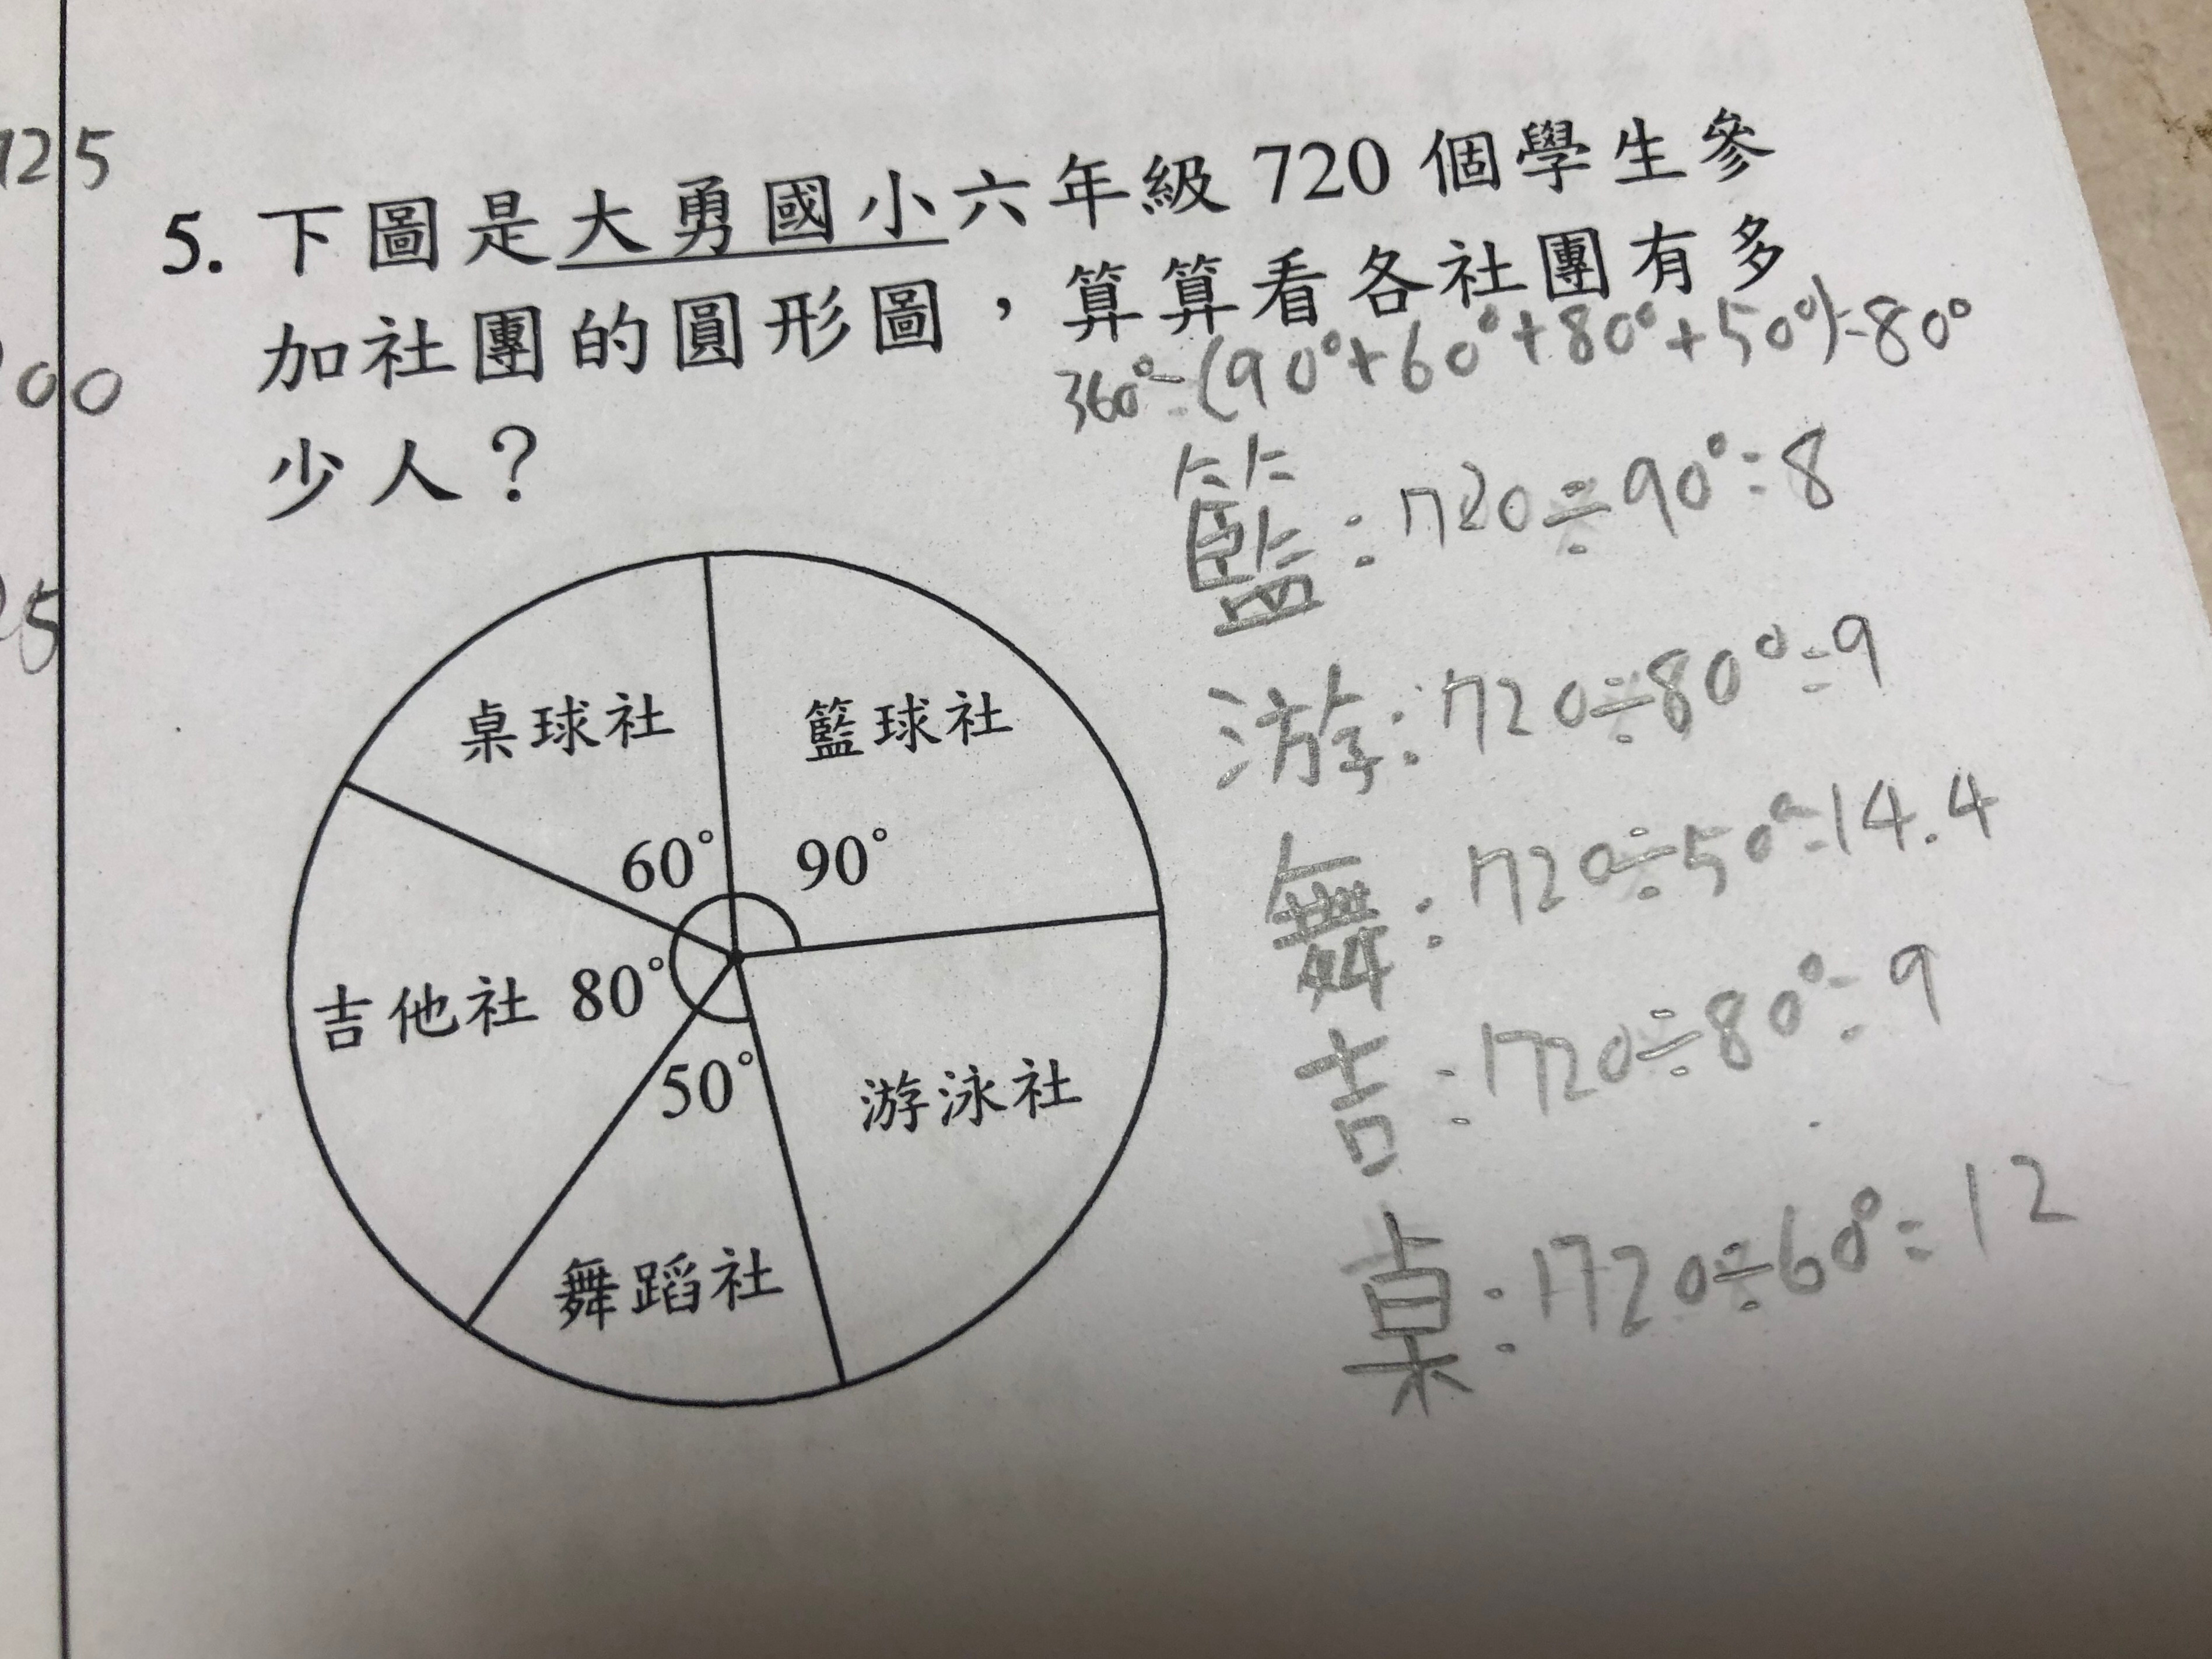 125
00
5
5. 下圖是大勇國小六年級 720 個學生參
加社團的圓形圖，算算看各社團有多
少人？
360°-(90°+60°+80°+50°)=80°
籃：720÷90°=8
游：720÷80°=9
舞：720÷50°=14.4
吉：720÷80°=9
桌：720÷60°=12
桌球社
籃球社
60°
90°
吉他社 80°
50°
游泳社
舞蹈社